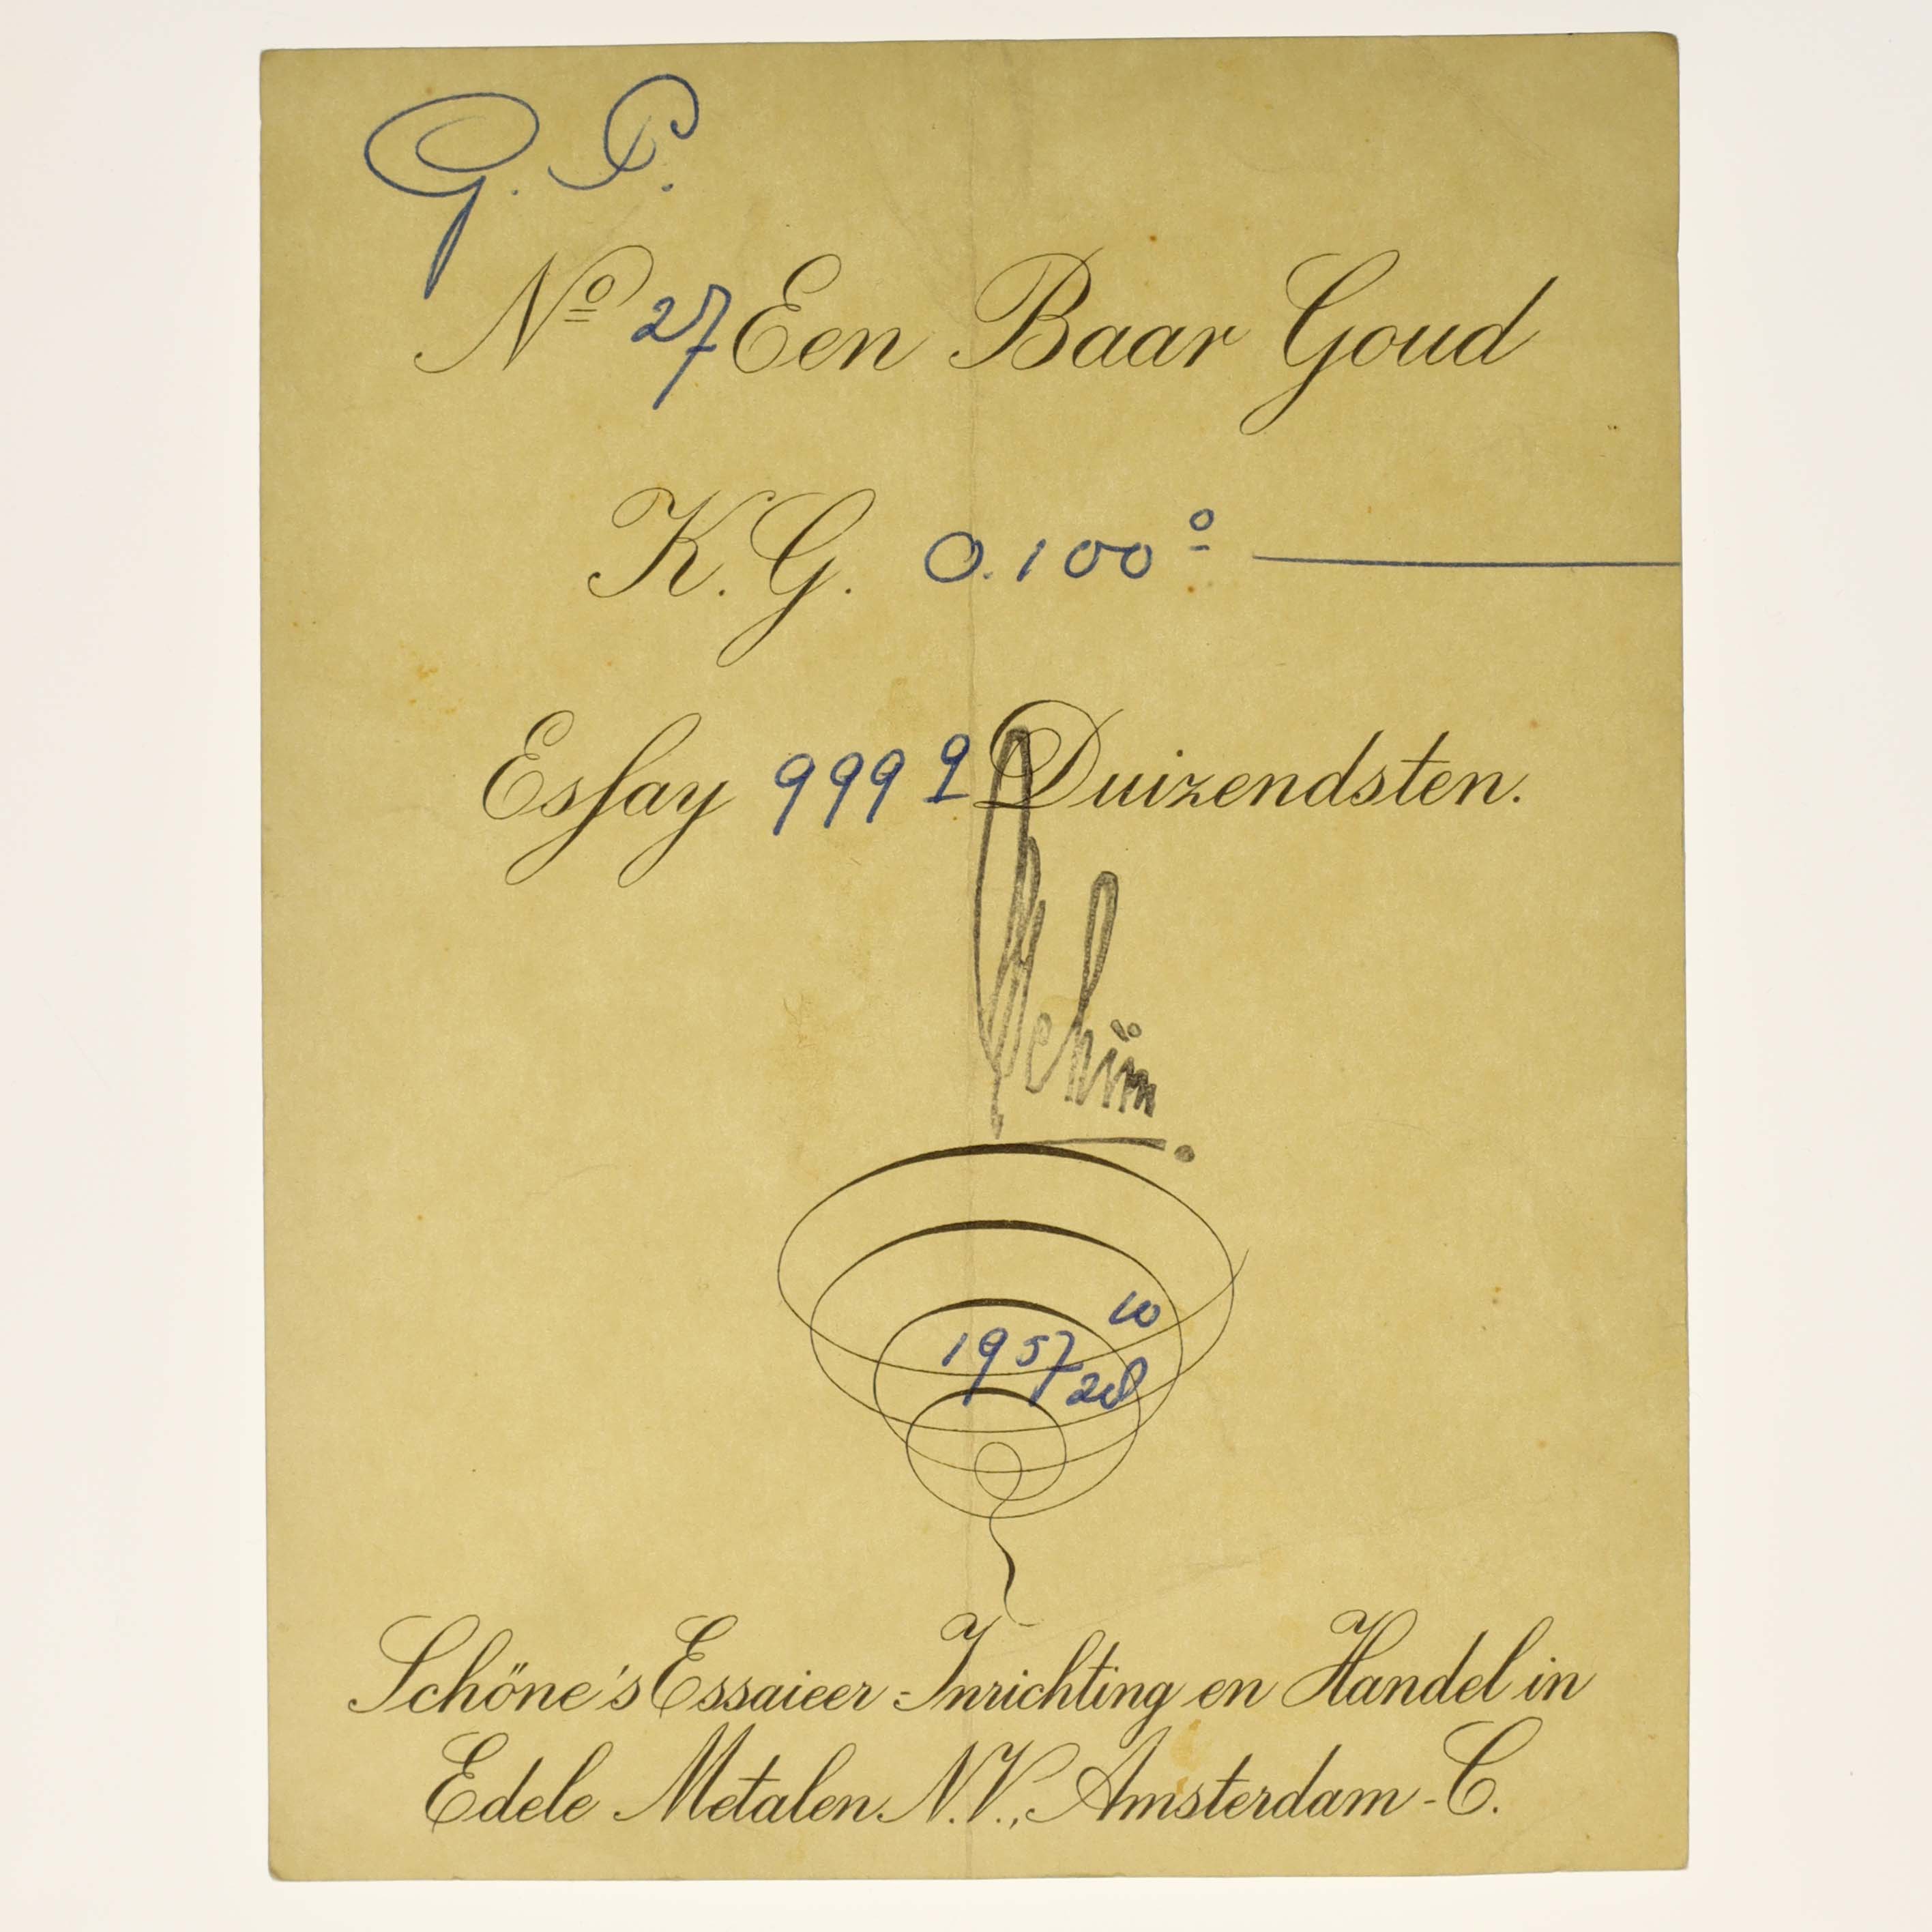 G. P.
Nº 27 Een Baar Goud
K.G. 0.100º
Esſay 999 9 Duizendsten.
10
1957
28
Schöne's Essaieer-Inrichting en Handel in
Edele Metalen N.V., Amsterdam-C.